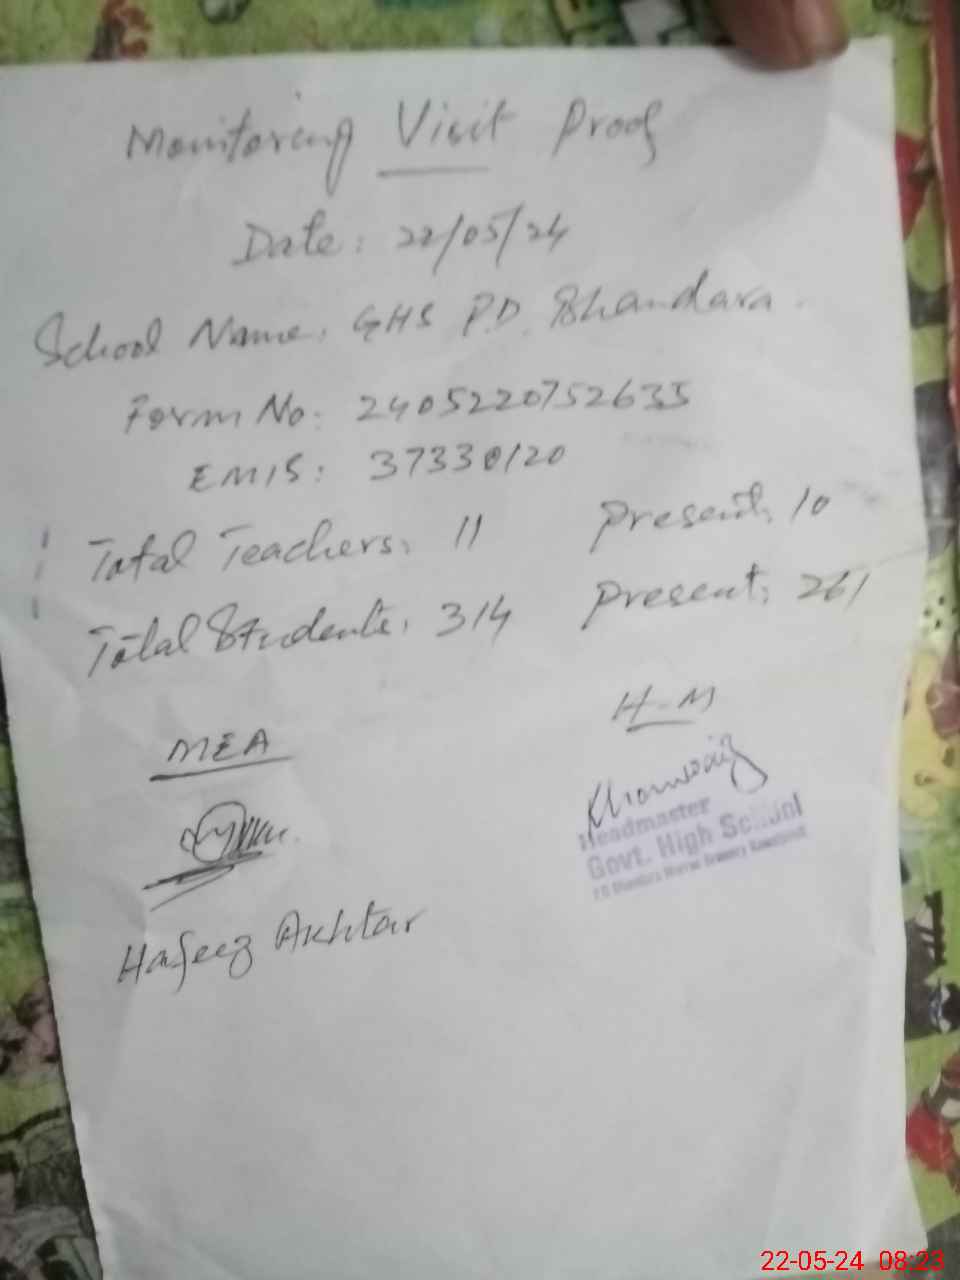 Monitoring Visit Proof
Date: 22/05/24
School Name: GHS P.D. Bhandara.
Form No: 2405220752635
EMIS: 37330120
Total Teachers: 11 Present: 10
Total Students: 314 Present: 261
MEA H-M
Headmaster
Govt. High School
Hafeez Akhtar
22-05-24 08:23